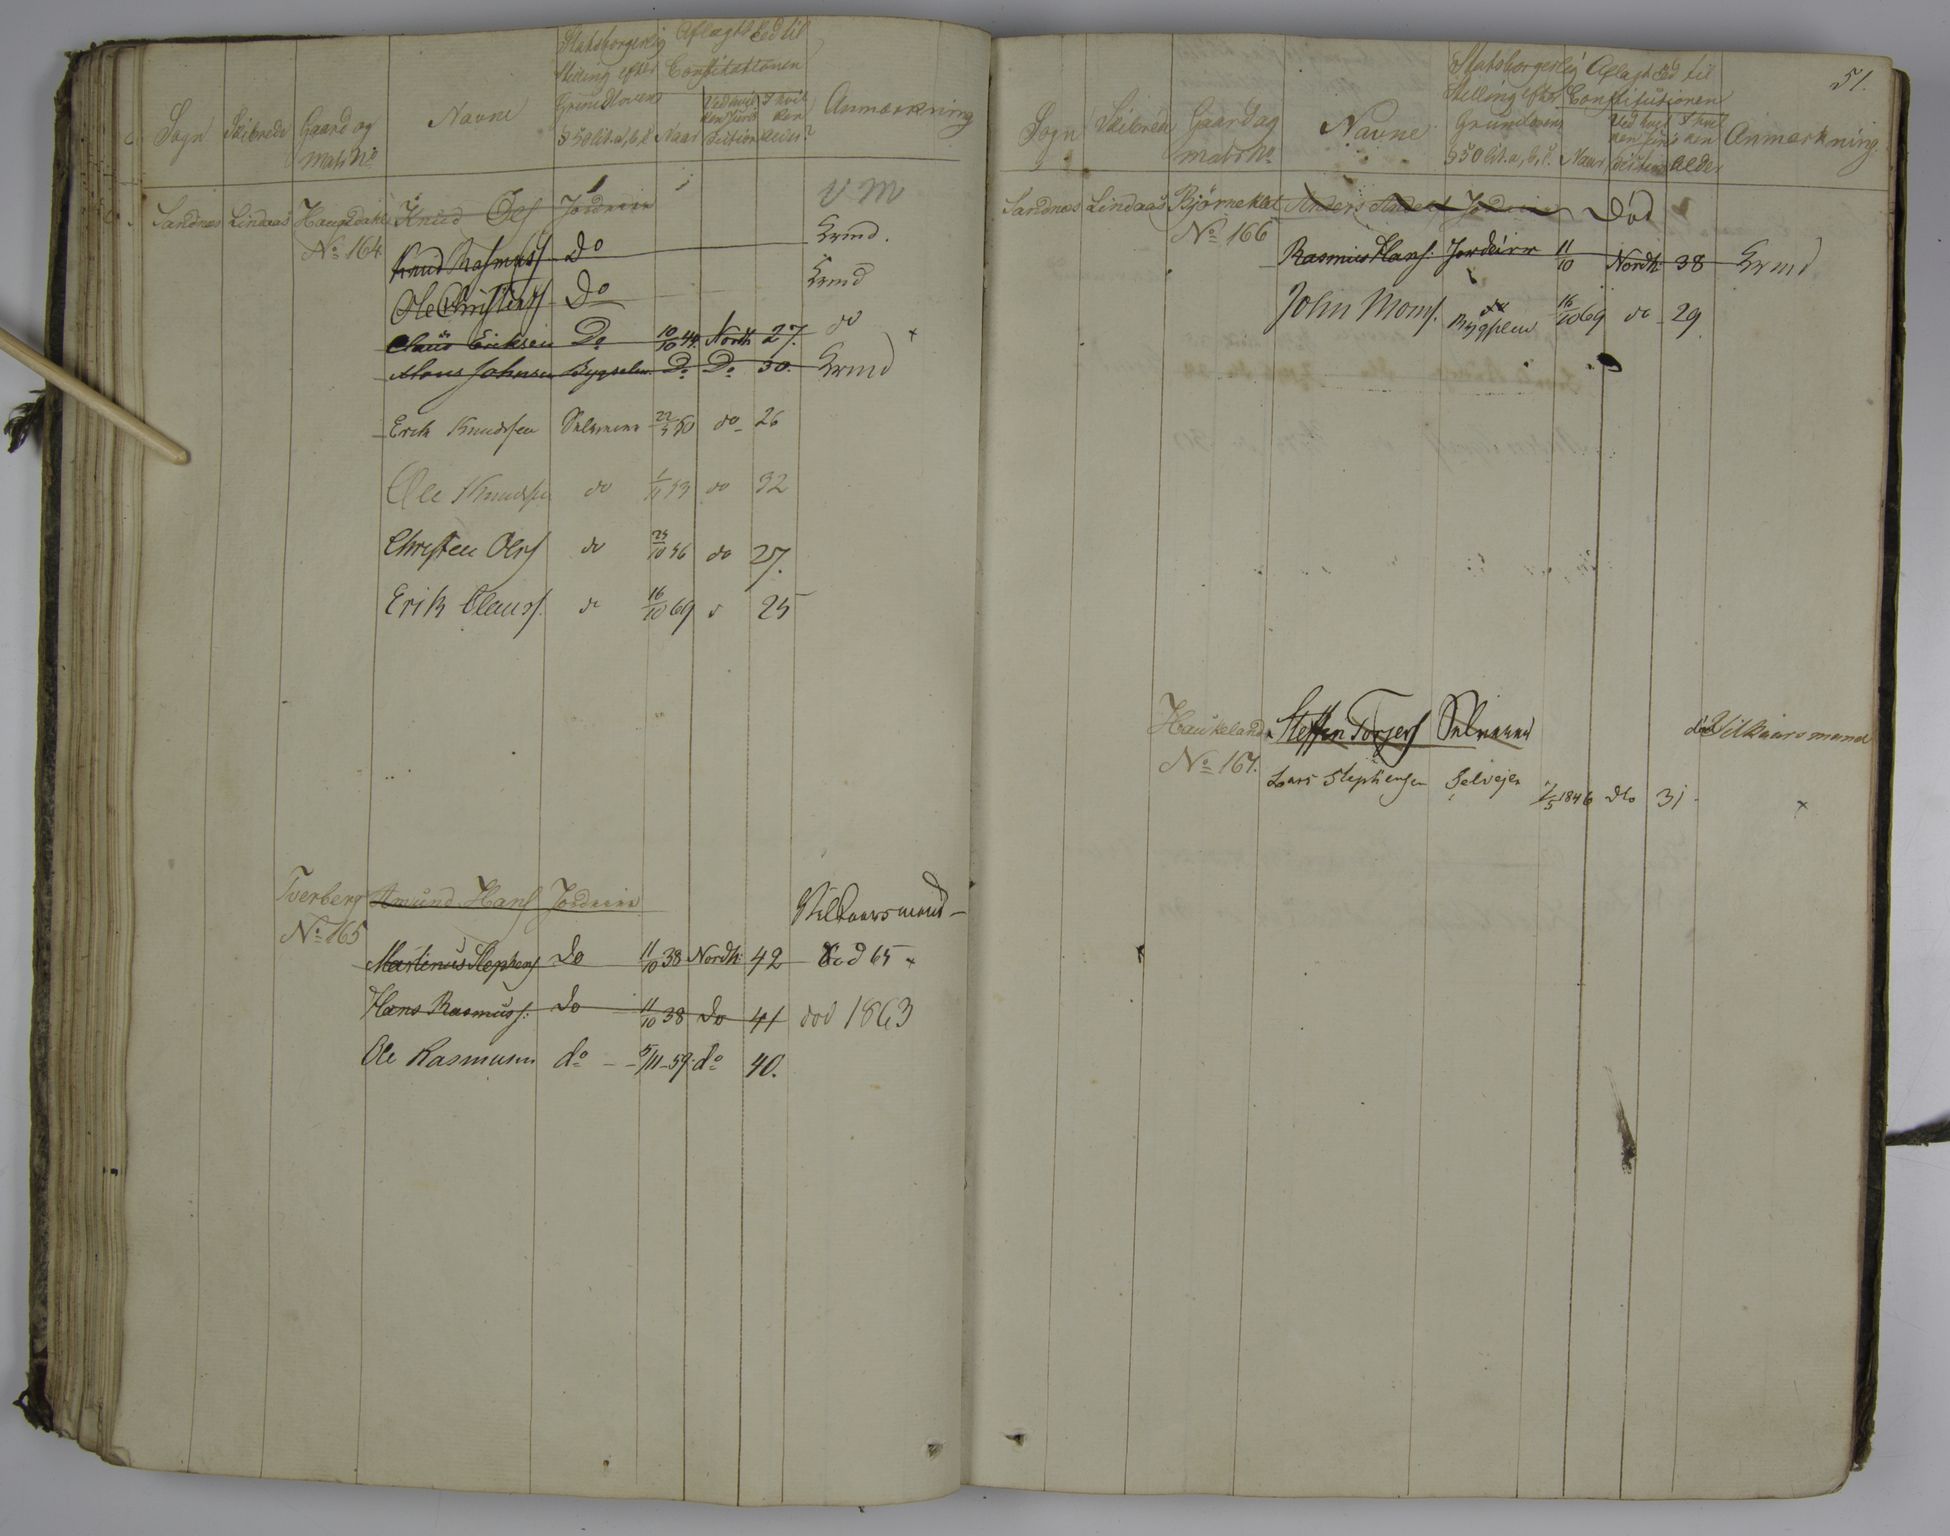 Sogn Skibrede Gaard og Matr No Navne Statsborgerlig Stilling efter Grundlovens § 50 lit. a, b, c Aflagt Eed til Constitutionen Naar Ved hvilken Juris diction I hvilken Alder? Anmærkning
Sandnæs Lindaas Haugsdahl Knud Ols Jordeier V M
No 164 Knud Rasmuss Do Ermd.
Ole Christens Do Ermd
Claus Eriksen Do 10/10 44. Nordh 27. do
Mons Johnsen Bygselm Do Do 30. Ermd
Erik Knudssen Selveier 22/5 50 do 26
Ole Knudsen do 1/11 53 do 32
Christen Olss do 25/10 56 do 27.
Erik Clauss. do 16/10 69 d 25
Tverberg Amund Hans Jordeier Vilkaarsmand
No 165
Martinus Stephens Do 11/10 38 Nordh 42 Død 65
Hans Rasmuss: Do 11/10 38 Do 41 død 1863
Ole Rasmussen do 5/11-59. do 40.
51.
Sogn Skibrede Gaard og Matr No Navne Statsborgerlig Stilling efter Grundlovens § 50 lit. a, b, c. Aflagt Eed til Constitutionen Naar Ved hvilken Jurisdiction I hvilken Alder Anmærkning
Sandnæs Lindaas Bjørneklet Anders Anders Jordeier Død
No 166 Rasmus Hans: Jordeier 11/10 Nordh 38 Ermd
John Mons. Bygselm 16/10 69 do 29
Haukeland Steffen Torgers Selveier død Vilkaarsmand
No 167. Lars Stephensen Selvejer 7/5 1846 dto 31.